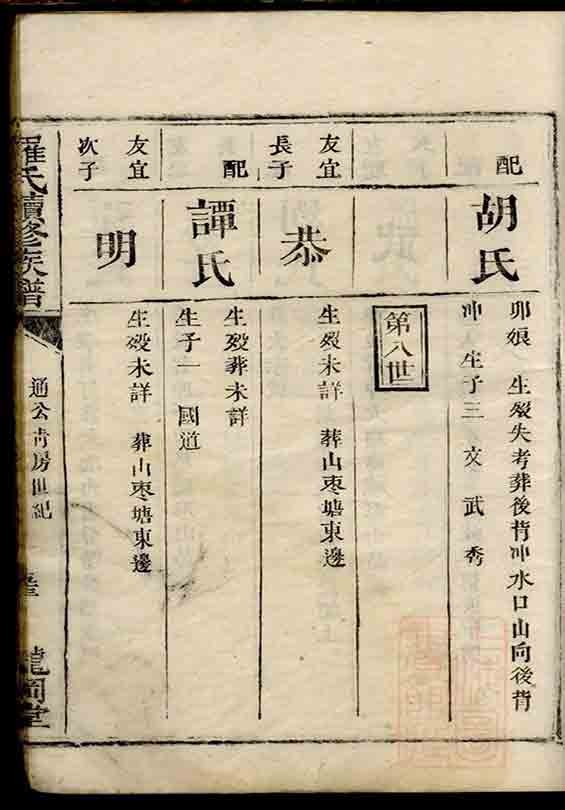 配
胡氏
卯娘 生歿失考葬後背冲水口山向後背
冲 生子三 文 武 秀
第八世
友宜
長子
恭
生歿未詳 葬山枣塘東邊
配
譚氏
生歿葬未詳
生子一 國道
友宜
次子
明
生歿未詳 葬山枣塘東邊
羅氏續修族譜
通公房世紀
龍岡堂